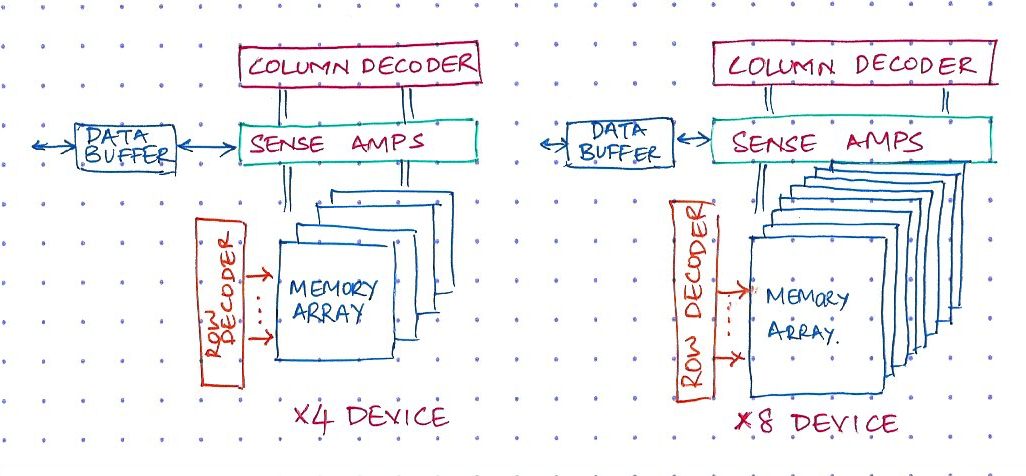 COLUMN DECODER
DATA
BUFFER
SENSE AMPS
ROW
DECODER
MEMORY
ARRAY
X4 DEVICE
COLUMN DECODER
DATA
BUFFER
SENSE AMPS
ROW DECODER
MEMORY
ARRAY.
X8 DEVICE